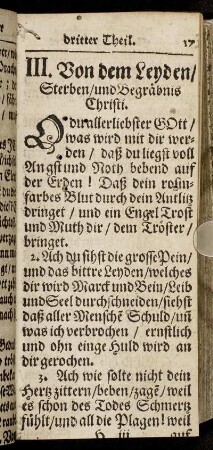 dritter Theil. 17
III. Von dem Leyden/
Sterben/und Begräbnis
Christi.
O du allerliebster GOtt/
was wird mit dir wer-
den/ daß du liegst voll
Angst und Noth bebend auf
der Erden! Daß dein rosin-
farbes Blut durch dein Antlitz
dringet/ und ein Engel Trost
und Muth dir/ dem Tröster/
bringet.
2. Ach du sihst die grosse Pein/
und das bittre Leyden/welches
dir wird Marck und Bein/Leib
und Seel durchschneiden/siehst
daß aller Mensche͂ Schuld/un͂
was ich verbrochen/ ernstlich
und ohn einge Huld wird an
dir gerochen.
3. Ach wie solte nicht dein
Hertz zittern/beben/zage͂/ weil
es schon des Todes Schmertz
fühlt/und all die Plagen! weil
auf